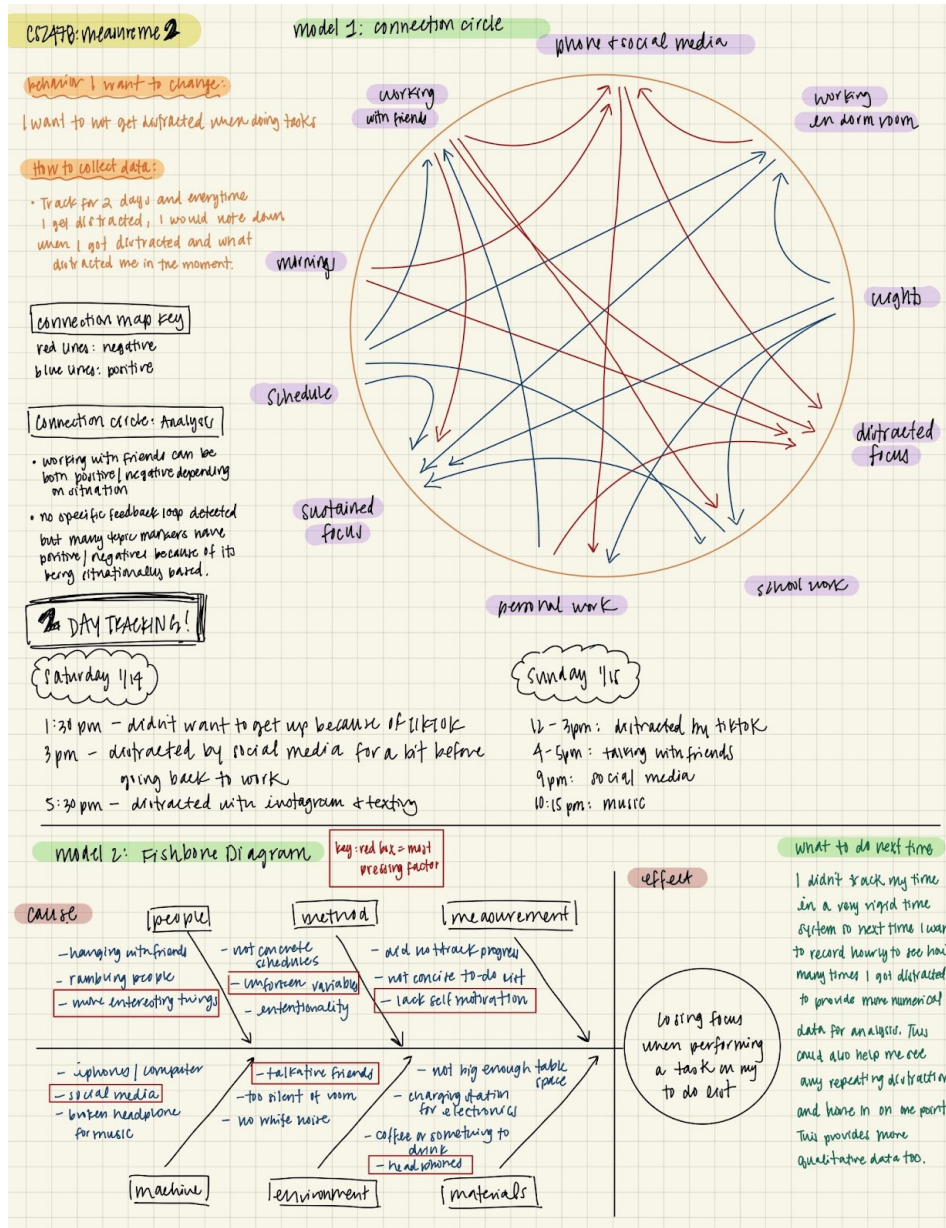 CS247B: measure me 2
model 1: connection circle
behavior I want to change:
I want to not get distracted when doing tasks
How to collect data:
• Track for 2 days and everytime
I get distracted, I would note down
when I got distracted and what
distracted me in the moment.
connection map key
red lines: negative
blue lines: positive
Connection circle: Analysis
• working with friends can be
both positive/negative depending
on situation
• no specific feedback loop detected
but many topic markers have
positive/negatives because of its
being situationally based.
phone & social media
working
with friends
working
in dorm room
morning
night
schedule
distracted
focus
sustained
focus
school work
personal work
2 DAY TRACKING!
Saturday 1/14
1:30 pm - didn't want to get up because of tiktok
3 pm - distracted by social media for a bit before
going back to work
5:30 pm - distracted with instagram & texting
Sunday 1/15
12-3pm: distracted by tiktok
4-5pm: talking with friends
9pm: social media
10:15 pm: music
model 2: Fishbone Diagram
key: red box = most
pressing factor
cause
people
- hanging with friends
- rambling people
- more interesting things
method
- not concrete
schedules
- unforseen variables
- intentionality
measurement
- did not track progress
- not concise to-do list
- lack self motivation
- iphones / computer
- social media
- broken headphone
for music
machine
- talkative friends
- too silent of room
- no white noise
environment
- not big enough table
space
- charging station
for electronics
- coffee or something to
drink
- headphones
materials
effect
losing focus
when performing
a task on my
to do list
what to do next time
I didn't track my time
in a very rigid time
system so next time I want
to record hourly to see how
many times I got distracted
to provide more numerical
data for analysis. This
could also help me see
any repeating distraction
and hone in on one point
This provides more
qualitative data too.